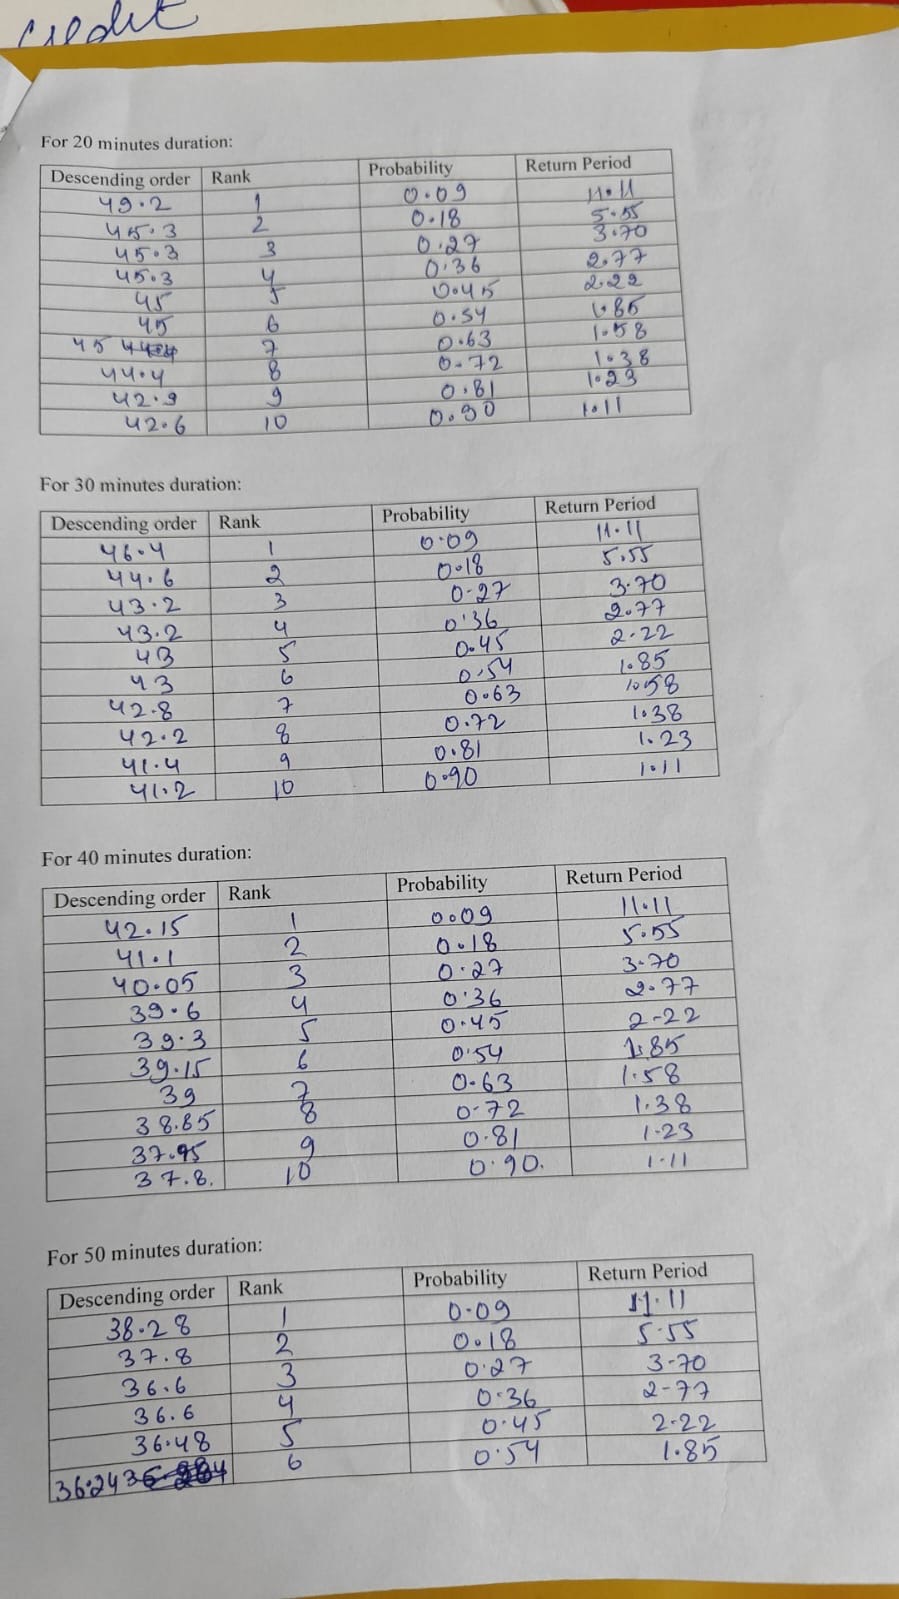 credit
For 20 minutes duration:
Descending order Rank Probability Return Period
49.2 1 0.09 11.11
45.3 2 0.18 5.55
45.3 3 0.27 3.70
45.3 4 0.36 2.77
45 5 0.45 2.22
45 6 0.54 1.85
45 7 0.63 1.58
44.4 8 0.72 1.38
42.9 9 0.81 1.23
42.6 10 0.90 1.11
For 30 minutes duration:
Descending order Rank Probability Return Period
46.4 1 0.09 11.11
44.6 2 0.18 5.55
43.2 3 0.27 3.70
43.2 4 0.36 2.77
43 5 0.45 2.22
43 6 0.54 1.85
42.8 7 0.63 1.58
42.2 8 0.72 1.38
41.4 9 0.81 1.23
41.2 10 0.90 1.11
For 40 minutes duration:
Descending order Rank Probability Return Period
42.15 1 0.09 11.11
41.1 2 0.18 5.55
40.05 3 0.27 3.70
39.6 4 0.36 2.77
39.3 5 0.45 2-22
39.15 6 0.54 1.85
39 7 0.63 1.58
38.85 8 0.72 1.38
37.95 9 0.81 1.23
37.8. 10 0.90. 1.11
For 50 minutes duration:
Descending order Rank Probability Return Period
38.28 1 0.09 11.11
37.8 2 0.18 5.55
36.6 3 0.27 3-70
36.6 4 0.36 2-77
36.48 5 0.45 2.22
36.24 6 0.54 1.85